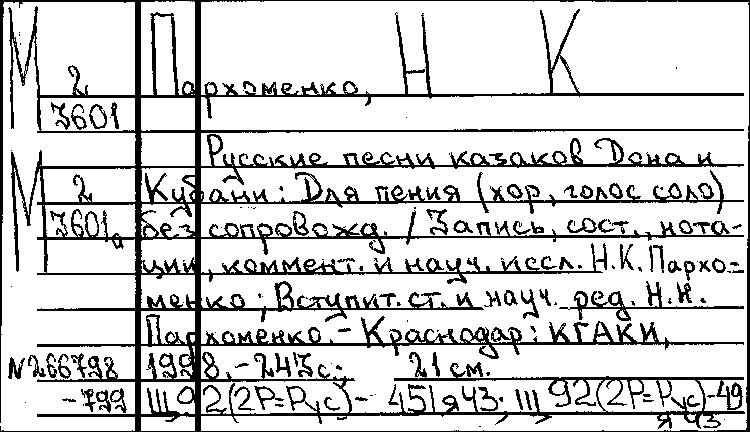 М 2 Пархоменко, Н К
3601
Русские песни казаков Дона и
М 2 Кубани: Для пения (хор, голос соло)
3601а без сопровожд. / Запись, сост., нота-
ции, коммент. и науч. иссл. Н.К. Пархо-
менко; Вступит. ст. и науч. ред. Н.К.
Пархоменко. - Краснодар: КГАКИ,
N266798 1998. - 243с.; 21 см.
-799 Щ92(2Р=Рус)- 451я43; Щ92(2Р=Рус)-49
я43